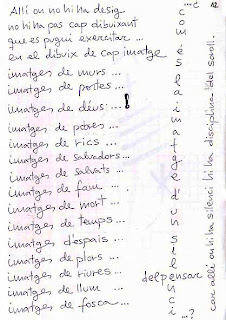 ...c 12
Allí on no hi ha desig
no hi ha pas cap dibuixant
que es pugui exercitar ...
en el dibuix de cap imatge
imatges de murs ...
imatges de portes ...
imatges de déus: ... !
imatges de pobres ...
imatges de rics ...
imatges de salvadors ...
imatges de salvats ...
imatges de fam ...
imatges de mort ...
imatges de temps ...
imatges d'espais ...
imatges de plors ...
imatges de riures ...
imatges de llum ...
imatges de fosca ...
com és la imatge d'un silenci
...?
del pensar
car allí on hi ha silenci hi ha disciplina del soroll.